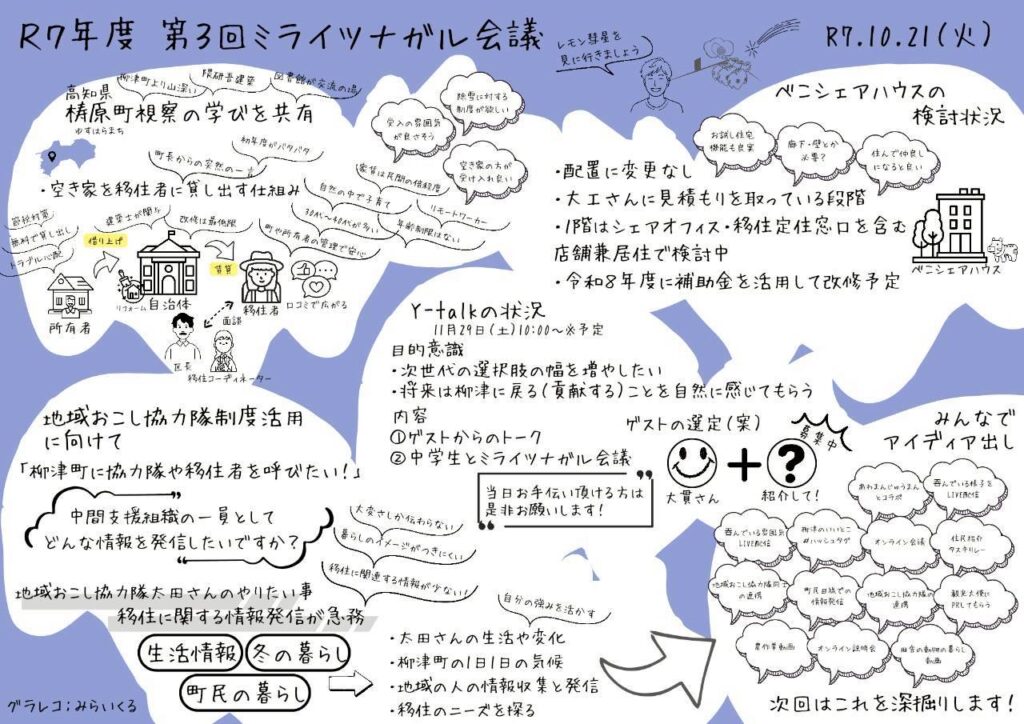 R7年度 第3回ミライツナガル会議
レモン彗星を
見に行きましょう
R7.10.21(火)
柳津町より山深い
隈研吾建築
図書館が交流の場
高知県
梼原町視察の学びを共有
ゆすはらまち
受入の雰囲気
が良さそう
除雪に対する
制度が欲しい
空き家の方が
受け入れ良い
初年度がバタバタ
町長からの突然の一言
・空き家を移住者に貸し出す仕組み
家賃は民間の倍程度
自然の中で子育て
30代〜40代が多い
リモートワーカー
年齢制限はない
町や所有者の管理で安心
節税対策
無料で貸し出し
トラブル心配
建築士が関与
改修は最低限
借り上げ
賃貸
所有者
リフォーム
自治体
移住者
口コミで広がる
面談
区長
移住コーディネーター
ベニシェアハウスの
検討状況
お試し住宅
機能も良案
廊下・壁とか
必要?
住んで仲良し
になると良い
・配置に変更なし
・大工さんに見積もりを取っている段階
・1階はシェアオフィス・移住定住窓口を含む
店舗兼居住で検討中
・令和8年度に補助金を活用して改修予定
ベニシェアハウス
Y-talkの状況
11月29日(土)10:00〜※予定
目的意識
・次世代の選択肢の幅を増やしたい
・将来は柳津に戻る(貢献する)ことを自然に感じてもらう
内容
①ゲストからのトーク
②中学生とミライツナガル会議
ゲストの選定(案)
募集中
大貫さん
+
?
紹介して!
当日お手伝い頂ける方は
是非お願いします!
地域おこし協力隊制度活用
に向けて
「柳津町に協力隊や移住者を呼びたい!」
中間支援組織の一員として
どんな情報を発信したいですか?
大変さしか伝わらない
暮らしのイメージがつきにくい
移住に関連する情報が少ない!
地域おこし協力隊太田さんのやりたい事
移住に関する情報発信が急務
生活情報
冬の暮らし
町民の暮らし
自分の強みを活かす
・太田さんの生活や変化
・柳津町の1日1日の気候
・地域の人の情報収集と発信
・移住のニーズを探る
みんなで
アイディア出し
あわまんじゅうまん
とコラボ
呑んでいる様子を
LIVE配信
呑んでいる雰囲気
LIVE配信
柳津のいいとこ
#ハッシュタグ
オンライン会議
住民紹介
タスキリレー
地域おこし協力隊同士
の連携
町民目線での
情報発信
地域おこし協力隊との
連携
観光大使に
PRしてもらう
農作業動画
オンライン説明会
田舎の動物の暮らし
動画
次回はこれを深掘りします!
グラレコ;みらいくる